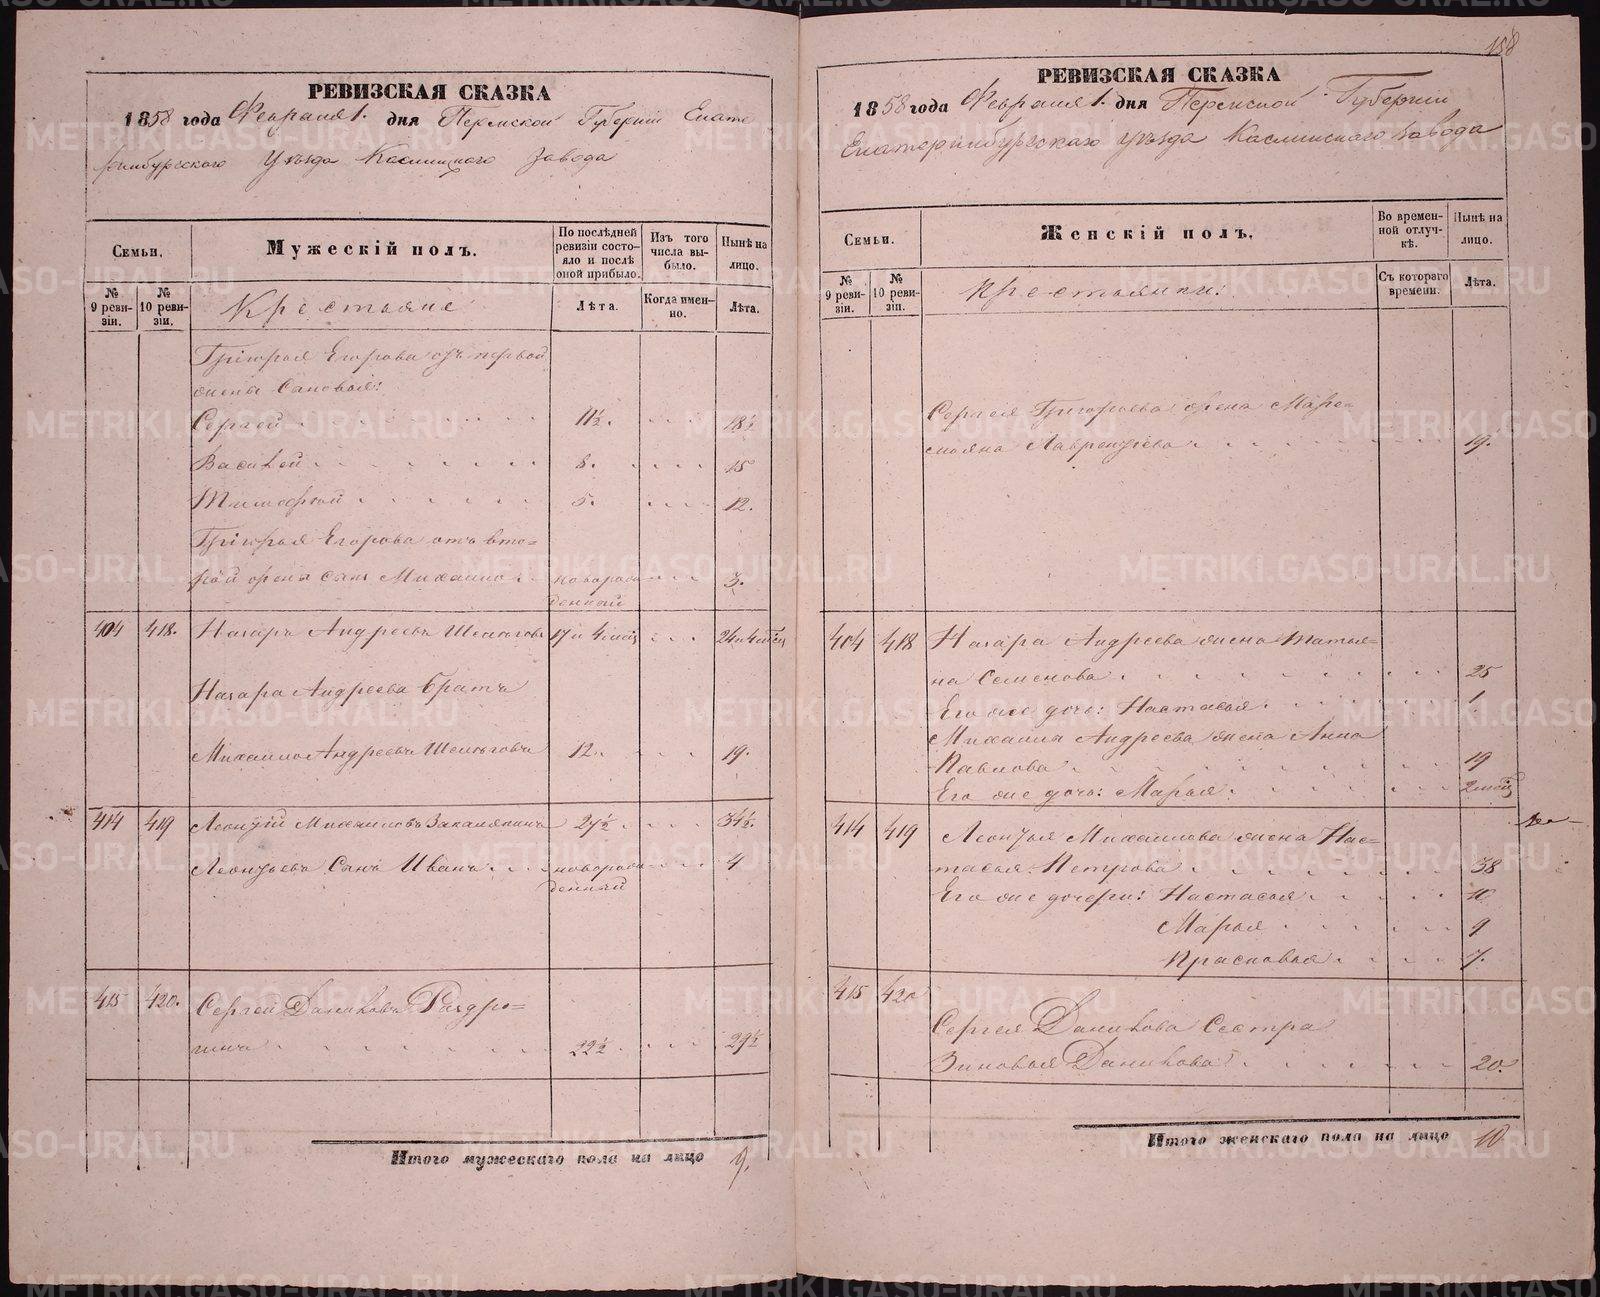 РЕВИЗСКАЯ СКАЗКА
1858 года Февраля 1. дня Пермской Губерніи Екате
ринбургскаго Уѣзда Каслинскаго Завода
Семьи.
№ 9 ревизіи.
№ 10 ревизіи.
Мужескій полъ.
Крестьяне
По послѣдней ревизіи состояло и послѣ оной прибыло.
Лѣта.
Изъ того числа выбыло.
Когда именно.
Нынѣ на лицо.
Лѣта.
Григорья Егорова отъ первой
жены Сыновья:
Сергей 11½ 18½
Василей 8. 15
Тимофей 5. 12.
Григорья Егорова отъ вто=
рой жены сынъ Михаило новорож 3.
денный
404 418. Назаръ Андреевъ 17 и 4 месц 24 и 4 месц
Назара Андреева братъ
Михаило Андреевъ 12. 19.
414 419 Леонтій Михаиловъ 27½ 34½
Леонтьевъ Сынъ Иванъ новорож 4
денный
415 420. Сергей Даниловъ Раздро=
гинъ 22½ 29½
Итого мужескаго пола на лицо 9.
158
РЕВИЗСКАЯ СКАЗКА
1858 года Февраля 1. дня Пермской Губерніи
Екатеринбургскаго Уѣзда Каслинскаго Завода
Семьи.
№ 9 ревизіи.
№ 10 ревизіи.
Женскій полъ.
Крестьянки:
Во временной отлучкѣ.
Съ котораго времени.
Нынѣ на лицо.
Лѣта.
Сергея Григорьева жена Маре=
мьяна Лаврентьева 19.
404 418 Назара Андреева жена Татья=
на Семенова 25
Его же дочь: Настасья 1.
Михаила Андреева жена Анна
Павлова 19
Его же дочь: Марья 2 месц
414 419 Леонтья Михаилова жена Нас=
тасья Петрова 38
Его же дочери: Настасья 10
Марья 9
Прасковья 7.
415 420
Сергея Данилова Сестра
Зиновья Данилова 20.
Итого женскаго пола на лицо 10
METRIKI.GASO-URAL.RU